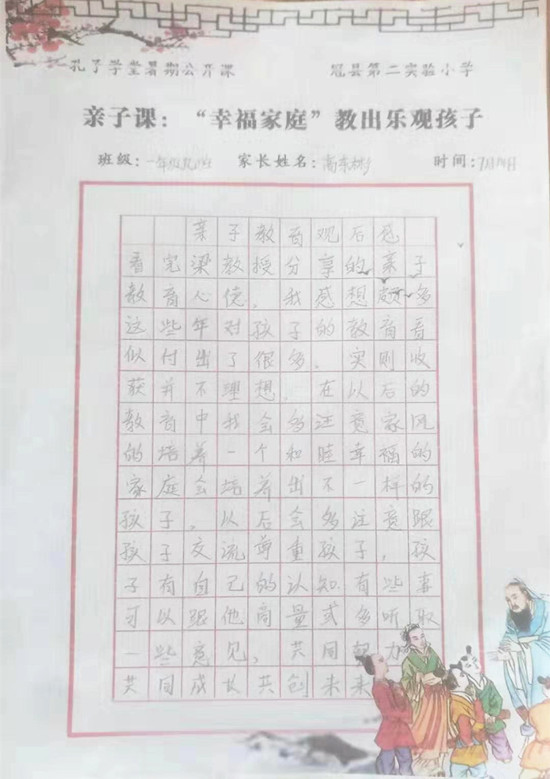 孔子学堂暑期公开课 冠县第二实验小学
亲子课：“幸福家庭”教出乐观孩子
班级：一年级九班 家长姓名：高东彬 时间：7月14日
亲子教育观后感
看完梁教授分享的亲子
教育心德，我感想颇多
这些年对孩子的教育看
似付出了很多，实则收
获并不理想，在以后的
教育中我会多注意家风
的培养一个和睦幸福的
家庭会培养出不一样的
孩子，以后会多注意跟
孩子交流尊重孩子，孩
子有自己的认知.有些事
可以跟他商量或多听取
一些意见，共同努力
共同成长共创未来